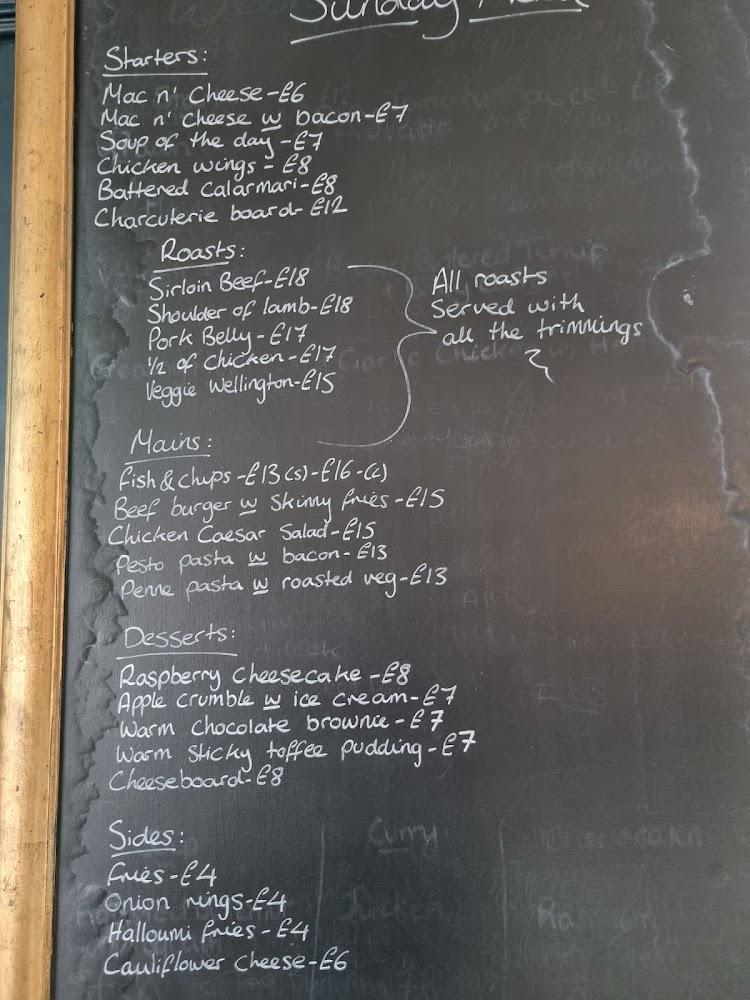 Sunday Menu
Starters:
Mac n' Cheese - £6
Mac n' cheese w bacon - £7
Soup of the day - £7
Chicken wings - £8
Battered Calarmari - £8
Charcuterie board - £12
Roasts:
Sirloin Beef - £18
Shoulder of lamb - £18
Pork Belly - £17
1/2 of Chicken - £17
Veggie Wellington - £15
All roasts
Served with
all the trimmings
Mains:
Fish & chips - £13 (s) - £16 - (L)
Beef burger w Skinny fries - £15
Chicken Caesar Salad - £15
Pesto pasta w bacon - £13
Penne pasta w roasted veg - £13
Desserts:
Raspberry Cheesecake - £8
Apple crumble w ice cream - £7
Warm chocolate brownie - £7
Warm Sticky toffee pudding - £7
Cheeseboard - £8
Sides:
Fries - £4
Onion rings - £4
Halloumi fries - £4
Cauliflower cheese - £6
Curry